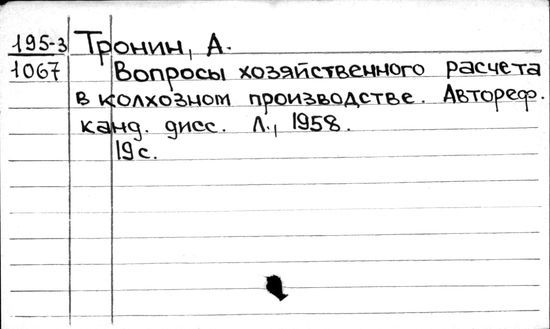 195-3 Тронин, А.
1067 Вопросы хозяйственного расчета
в колхозном производстве. Автореф.
канд. дисс. Л., 1958.
19 с.